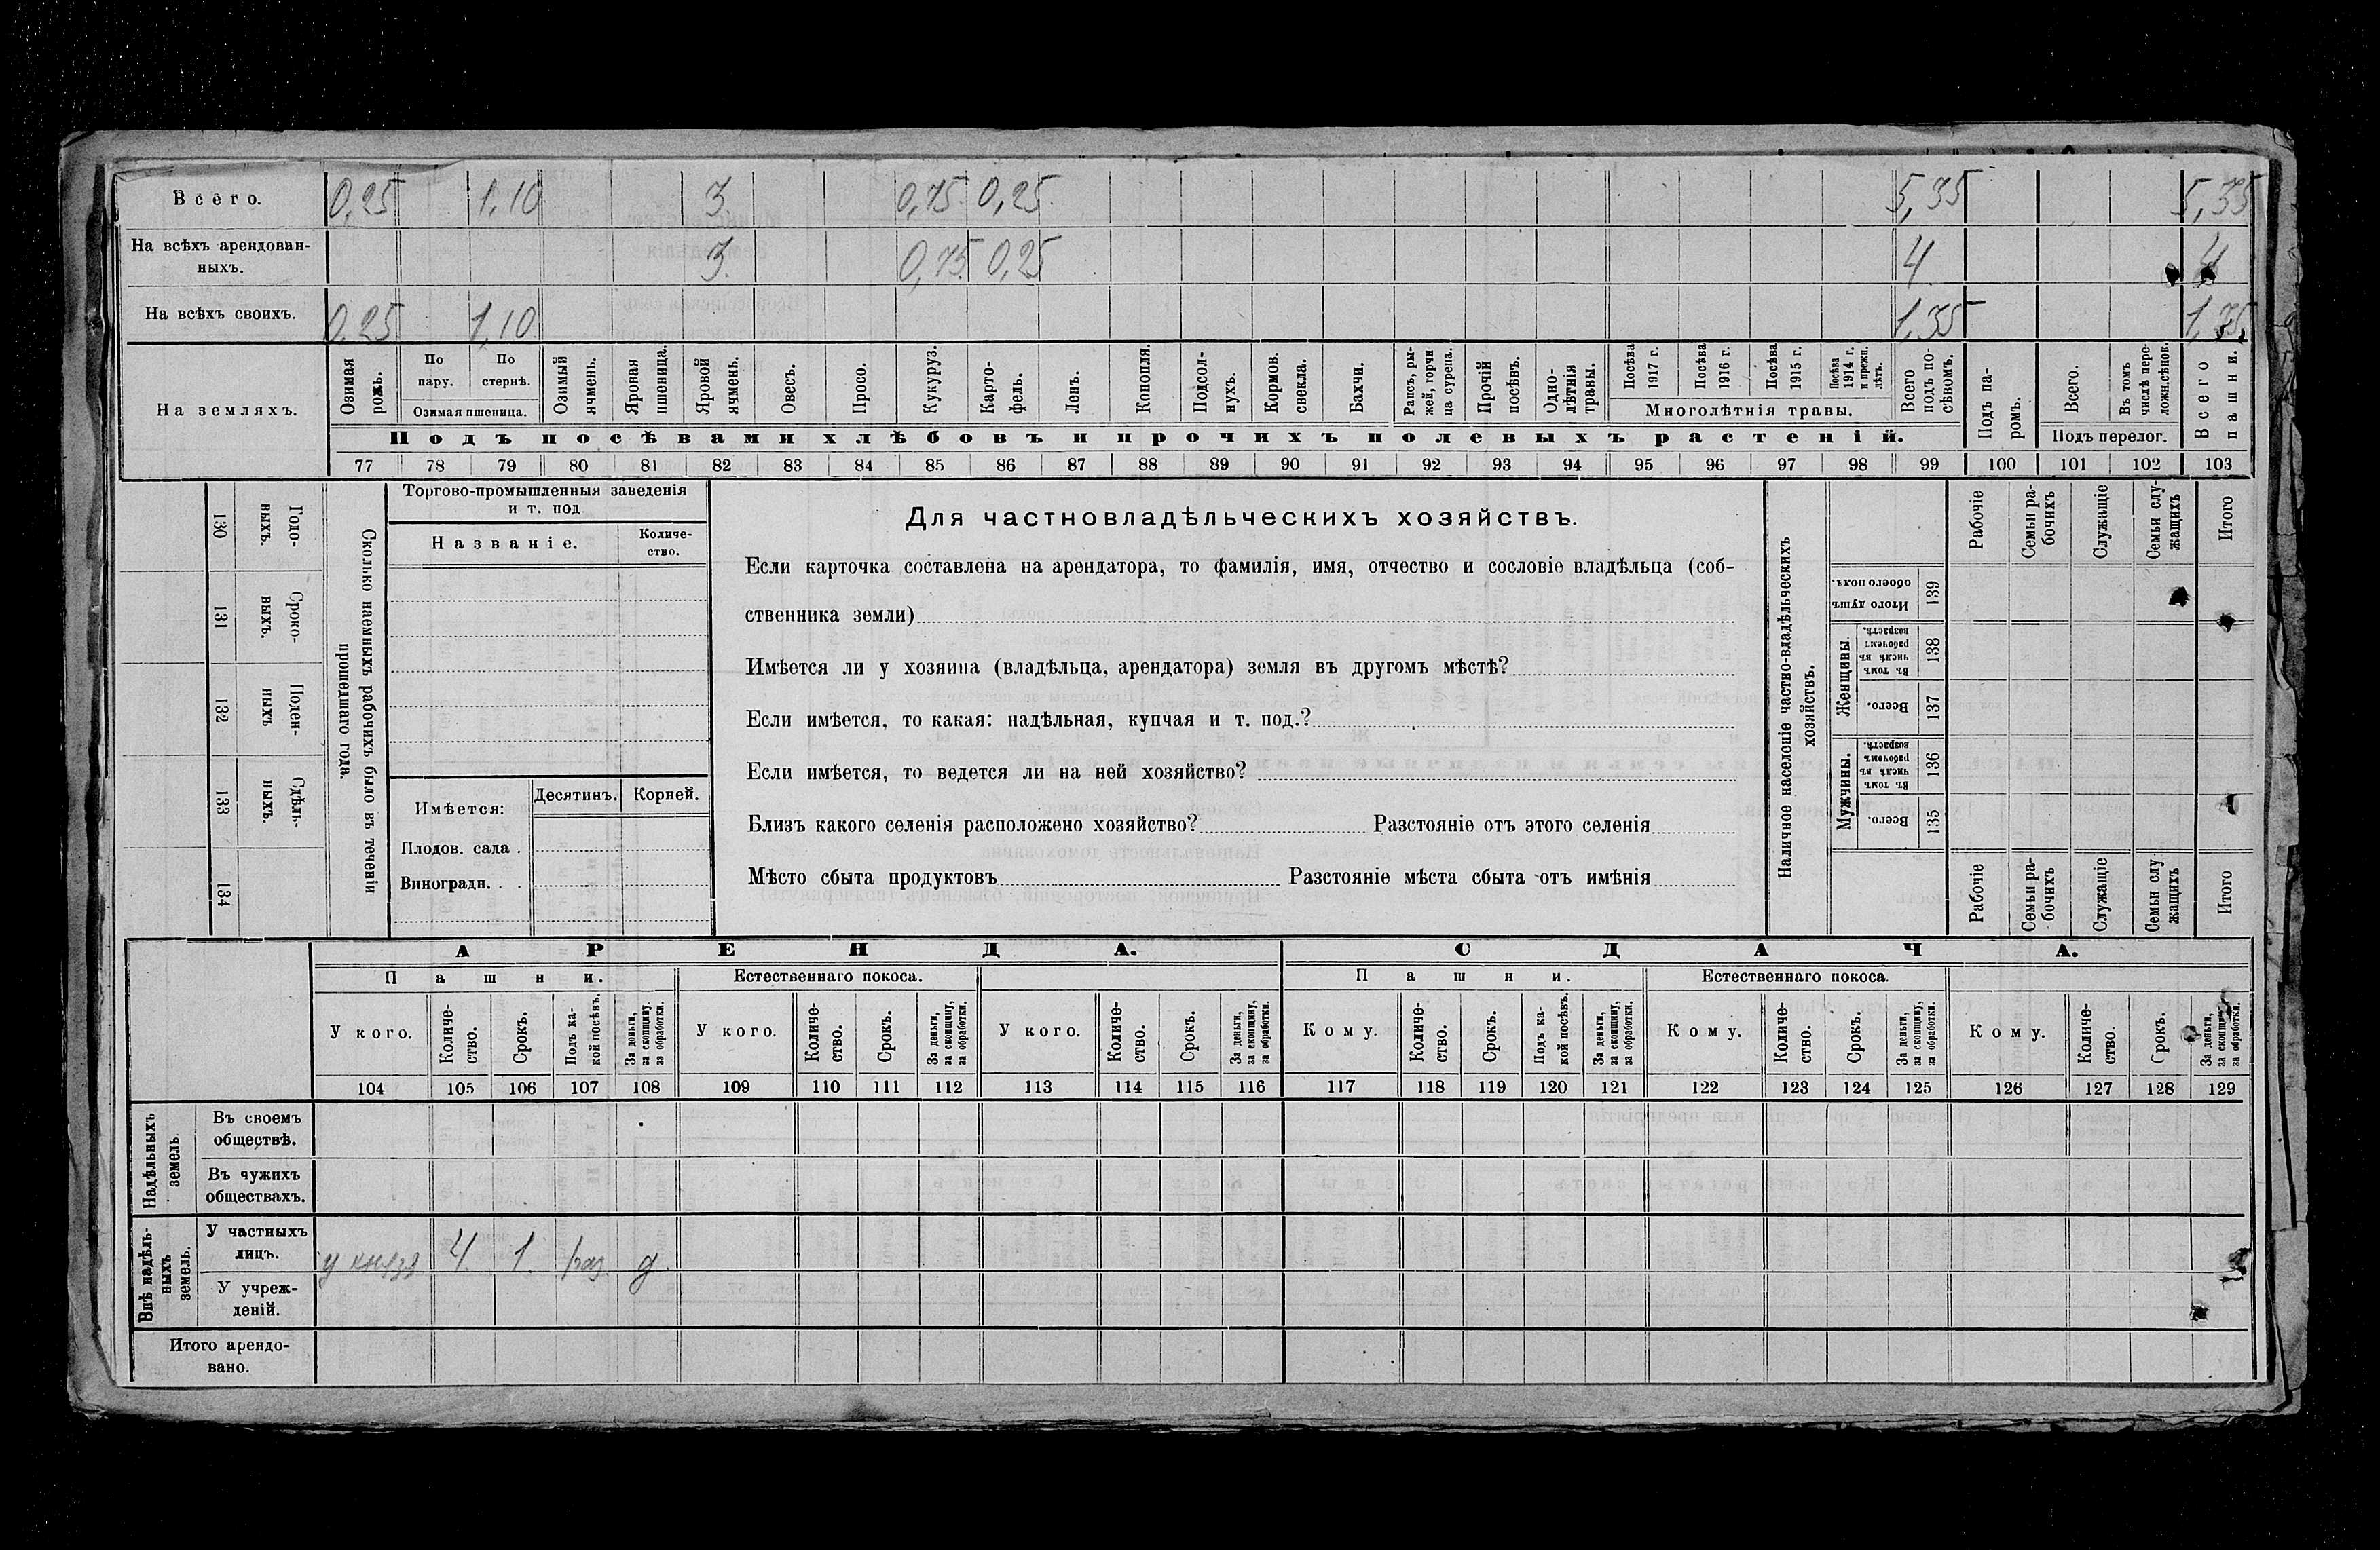 Всего. 0,25 1,10 3 0,75 0,25 5,35 5,35
На всѣхъ арендован-
ныхъ. 3. 0,75 0,25 4 4
На всѣхъ своихъ. 0,25 1,10 1,35 1,35
На земляхъ.
Озимая рожь.
По пару.
По стернѣ.
Озимая пшеница.
Озимый ячмень.
Яровая пшоница.
Яровой ячмень.
Овесъ.
Просо.
Кукуруз.
Карто-
фель.
Ленъ.
Конопля.
Подсол-
нухъ.
Кормов.
свекла.
Бахчи.
Рапсъ, ры-
жей, горчи
ца сурепа.
Прочій
посѣвъ.
Одно-
лѣтнія
травы.
Посѣва
1917 г.
Посѣва
1916 г.
Посѣва
1915 г.
Посѣва
1914 г.
и прежн.
лѣтъ.
Многолѣтнія травы.
Всего
подъ по-
сѣвомъ.
Подъ па-
ромъ.
Всего.
Въ томъ
числѣ пере-
ложн.сѣнок.
Подъ перелог.
Всего
пашни.
Подъ посѣвами хлѣбовъ и прочихъ полевыхъ растеній.
77 78 79 80 81 82 83 84 85 86 87 88 89 90 91 92 93 94 95 96 97 98 99 100 101 102 103
130 Годо-
выхъ.
131 Сроко-
выхъ.
132 Поден-
ныхъ
133 Сдѣль-
ныхъ.
134
Сколько наемныхъ рабочихъ было въ теченіи
прошедшаго года.
Торгово-промышленныя заведенія
и т. под
Названіе.
Количе-
ство.
Имѣется:
Десятинъ. Корней.
Плодов. сада .
Виноградн. . .
Для частновладѣльческихъ хозяйствъ.
Если карточка составлена на арендатора, то фамилія, имя, отчество и сословіе владѣльца (соб-
ственника земли)
Имѣется ли у хозяина (владѣльца, арендатора) земля въ другомъ мѣстѣ?
Если имѣется, то какая: надѣльная, купчая и т. под.?
Если имѣется, то ведется ли на ней хозяйство?
Близъ какого селенія расположено хозяйство? Разстояніе отъ этого селенія
Мѣсто сбыта продуктовъ Разстояніе мѣста сбыта отъ имѣнія
Наличное населеніе частно-владѣльческихъ
хозяйствъ.
Рабочіе
Семьи ра-
бочихъ
Служащіе
Семьи слу-
жащихъ
Итого
Итого душъ
обоего пола.
139
Женщины
Въ томъ
числѣ въ
рабочемъ
возрастѣ.
138
Всего.
137
Мужчины.
Въ томъ
числѣ въ
рабочемъ
возрастѣ.
136
Всего.
135
Рабочіе
Семьи ра-
бочихъ
Служащіе
Семьи слу-
жащихъ
Итого
АРЕНДА. СДАЧА.
Пашни. Естественнаго покоса. Пашни. Естественнаго покоса.
У кого.
Количе-
ство.
Срокъ.
Подъ ка-
кой посѣвъ.
За деньги,
за скопщину,
за обработки.
У кого.
Количе-
ство.
Срокъ.
За деньги,
за скопщину,
за обработки.
У кого.
Количе-
ство.
Срокъ.
За деньги,
за скопщину,
за обработки.
Кому.
Количе-
ство.
Срокъ.
Подъ ка-
кой посѣвъ.
За деньги,
за скопщину,
за обработки.
Кому.
Количе-
ство.
Срокъ.
За деньги,
за скопщину,
за обработки.
Кому.
Количе-
ство.
Срокъ.
За деньги,
за скопщину,
за обработки.
104 105 106 107 108 109 110 111 112 113 114 115 116 117 118 119 120 121 122 123 124 125 126 127 128 129
Надѣльныхъ
земель
Въ своемъ
обществѣ.
Въ чужихъ
обществахъ.
Внѣ надѣль-
ныхъ
земель.
У частныхъ
лицъ. у князя 4. 1. раз. д.
У учреж-
деній.
Итого арендо-
вано.